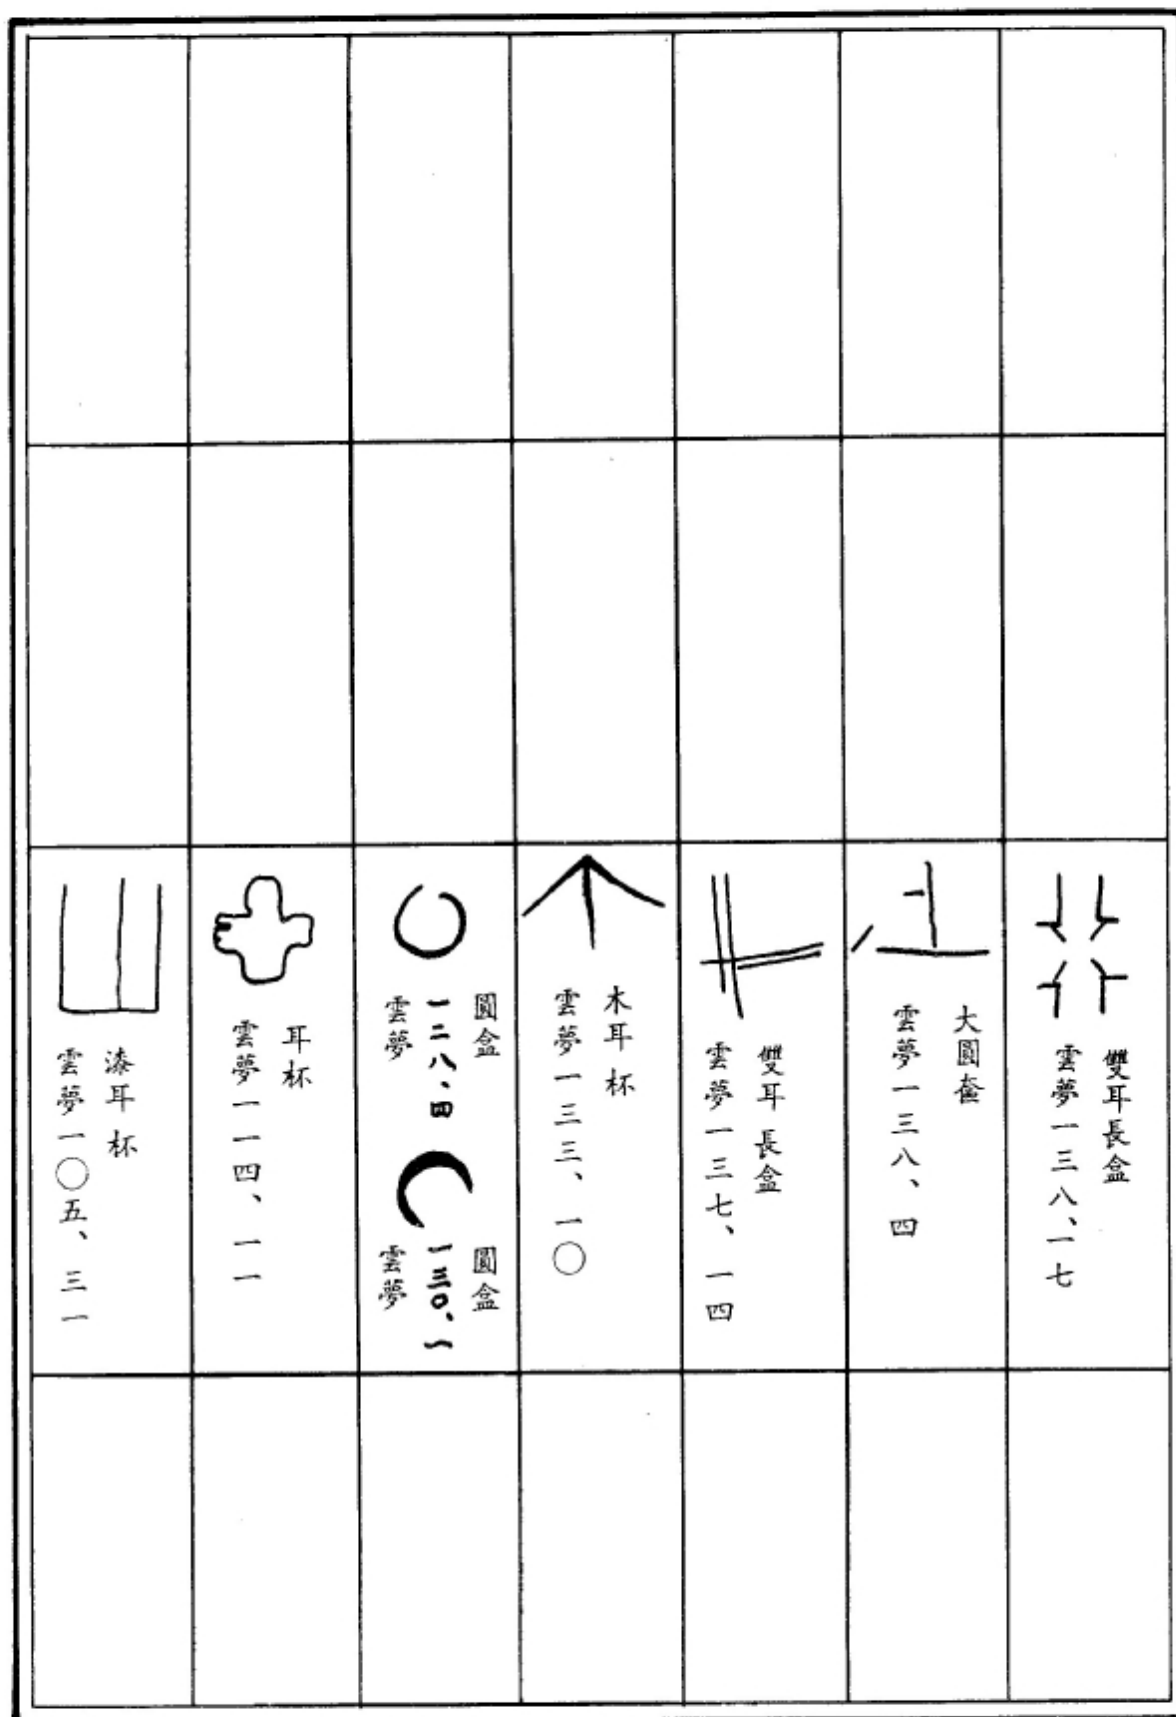 雙耳長盒
雲夢一三八、一七
大圓奩
雲夢一三八、四
雙耳長盒
雲夢一三七、一四
木耳杯
雲夢一三三、一〇
圓盒
一二八、四
雲夢
圓盒
一三〇、一
雲夢
耳杯
雲夢一一四、一一
漆耳杯
雲夢一〇五、三一